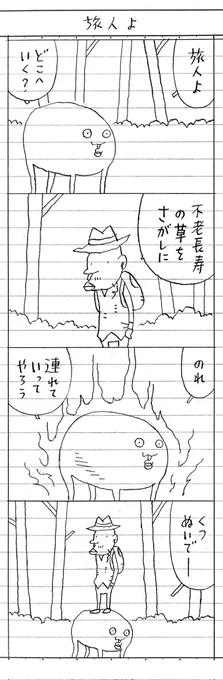 旅人よ
旅人よ
どこへ
いく？
不老長寿
の草を
さがしに
のれ
連れて
いって
やろう
くつ
ぬいでー